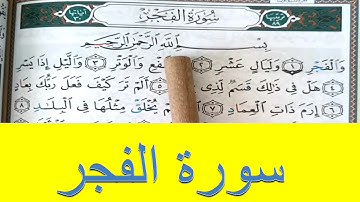 سُورَةُ الفَجْرِ
بِسْمِ اللَّهِ الرَّحْمَٰنِ الرَّحِيمِ
وَالْفَجْرِ ١ وَلَيَالٍ عَشْرٍ ٢ وَالْوَتْرِ ٣ وَاللَّيْلِ إِذَا يَسْرِ
٤ هَلْ فِي ذَٰلِكَ قَسَمٌ لِّذِي ٥ أَلَمْ تَرَ كَيْفَ فَعَلَ رَبُّكَ بِعَادٍ
٦ إِرَمَ ذَاتِ الْعِمَادِ ٧ لَمْ يُخْلَقْ مِثْلُهَا فِي الْبِلَادِ ٨
سورة الفجر